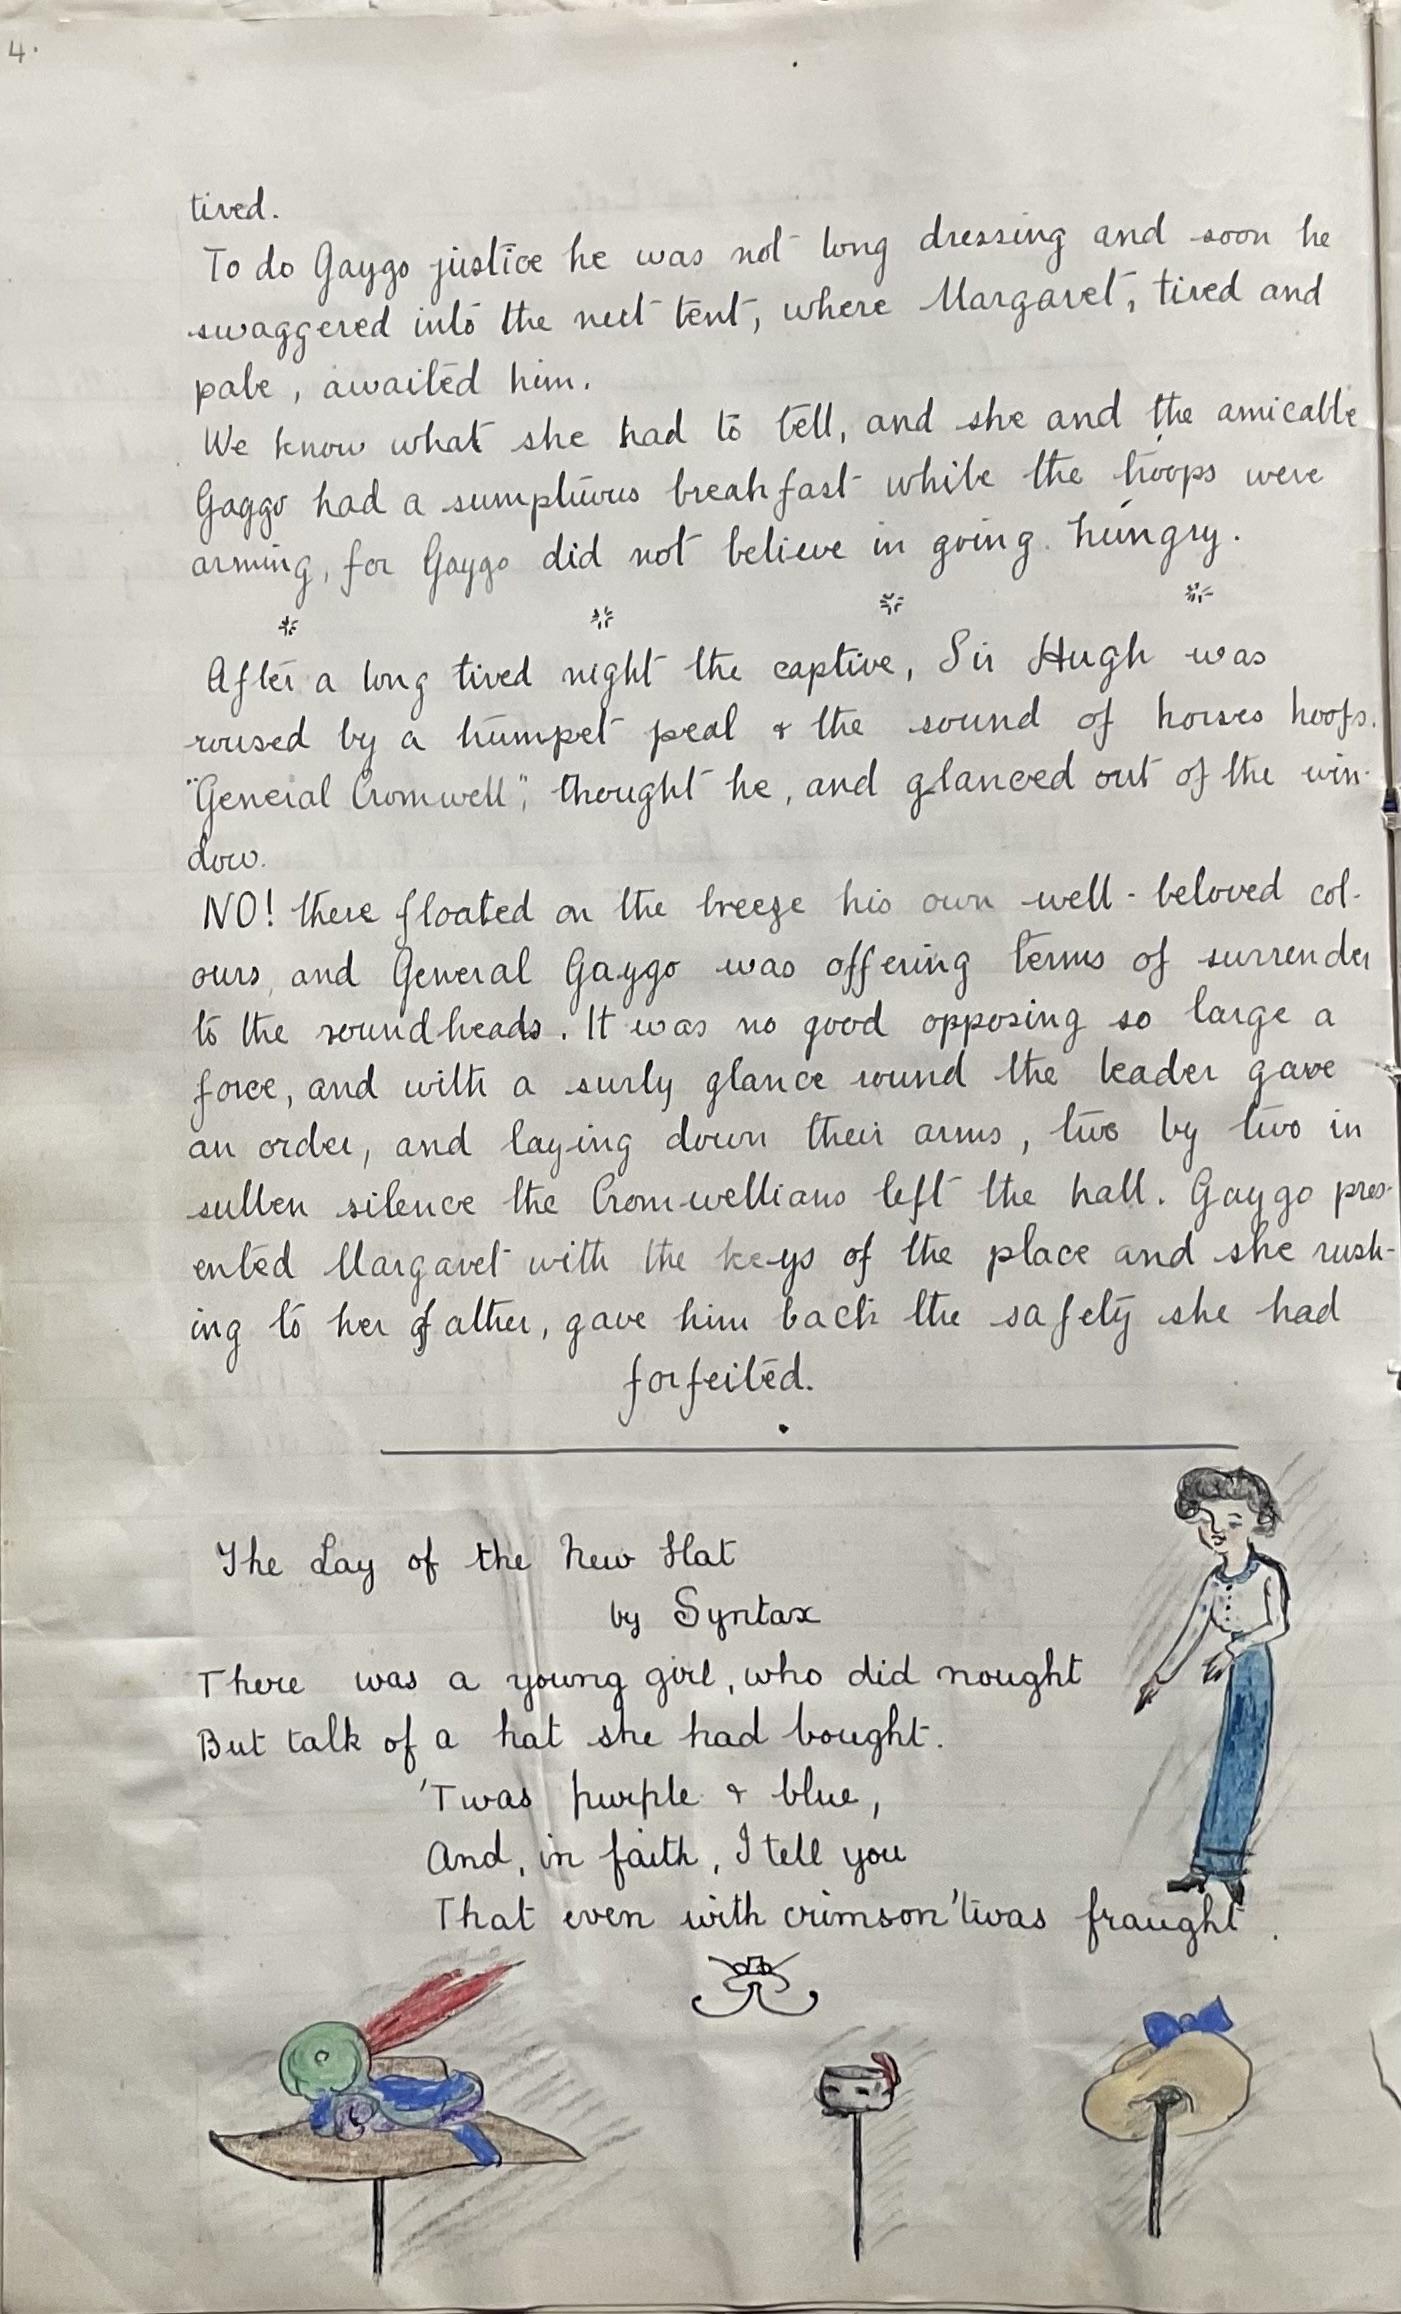 4.
tired.
To do Gaygo justice he was not long dressing and soon he
swaggered into the next tent, where Margaret, tired and
pale, awaited him.
We know what she had to tell, and she and the amicable
Gaygo had a sumptuous breakfast while the troops were
arming, for Gaygo did not believe in going hungry.
* * * *
After a long tired night the captive, Sir Hugh was
roused by a trumpet peal & the sound of horses hoofs.
"General Cromwell", thought he, and glanced out of the win-
dow.
NO! there floated on the breeze his own well-beloved col-
ours, and General Gaygo was offering terms of surrender
to the roundheads. It was no good opposing so large a
force, and with a surly glance round the leader gave
an order, and laying down their arms, two by two in
sullen silence the Cromwellians left the hall. Gaygo pres-
ented Margaret with the keys of the place and she rush-
ing to her father, gave him back the safety she had
forfeited.
The Lay of the New Hat
by Syntax
There was a young girl, who did nought
But talk of a hat she had bought.
'Twas purple & blue,
And, in faith, I tell you
That even with crimson 'twas fraught.